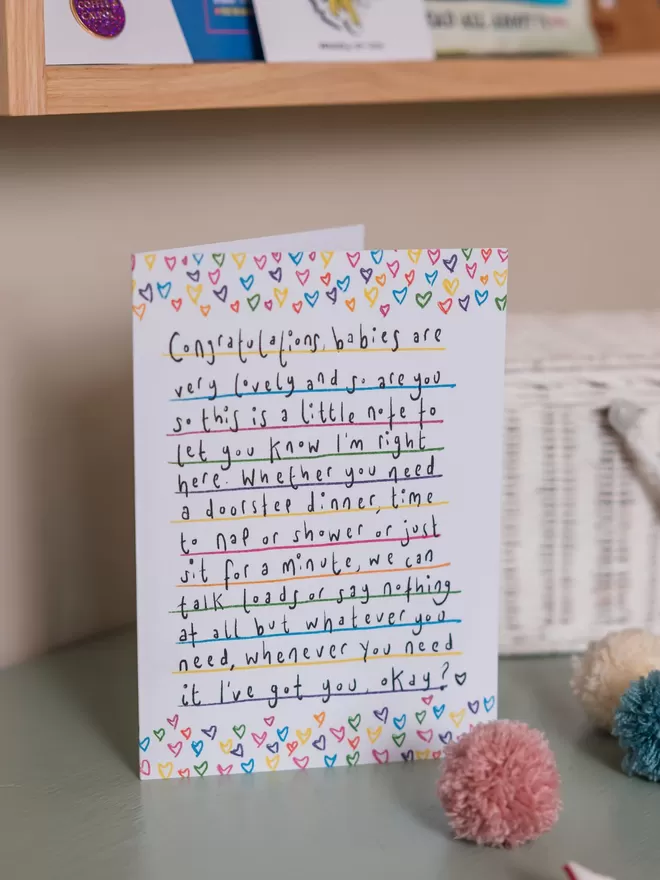 Congratulations, babies are
very lovely and so are you
so this is a little note to
let you know I'm right
here. Whether you need
a doorstep dinner, time
to nap or shower or just
sit for a minute, we can
talk loads or say nothing
at all but whatever you
need, whenever you need
it I've got you, okay?